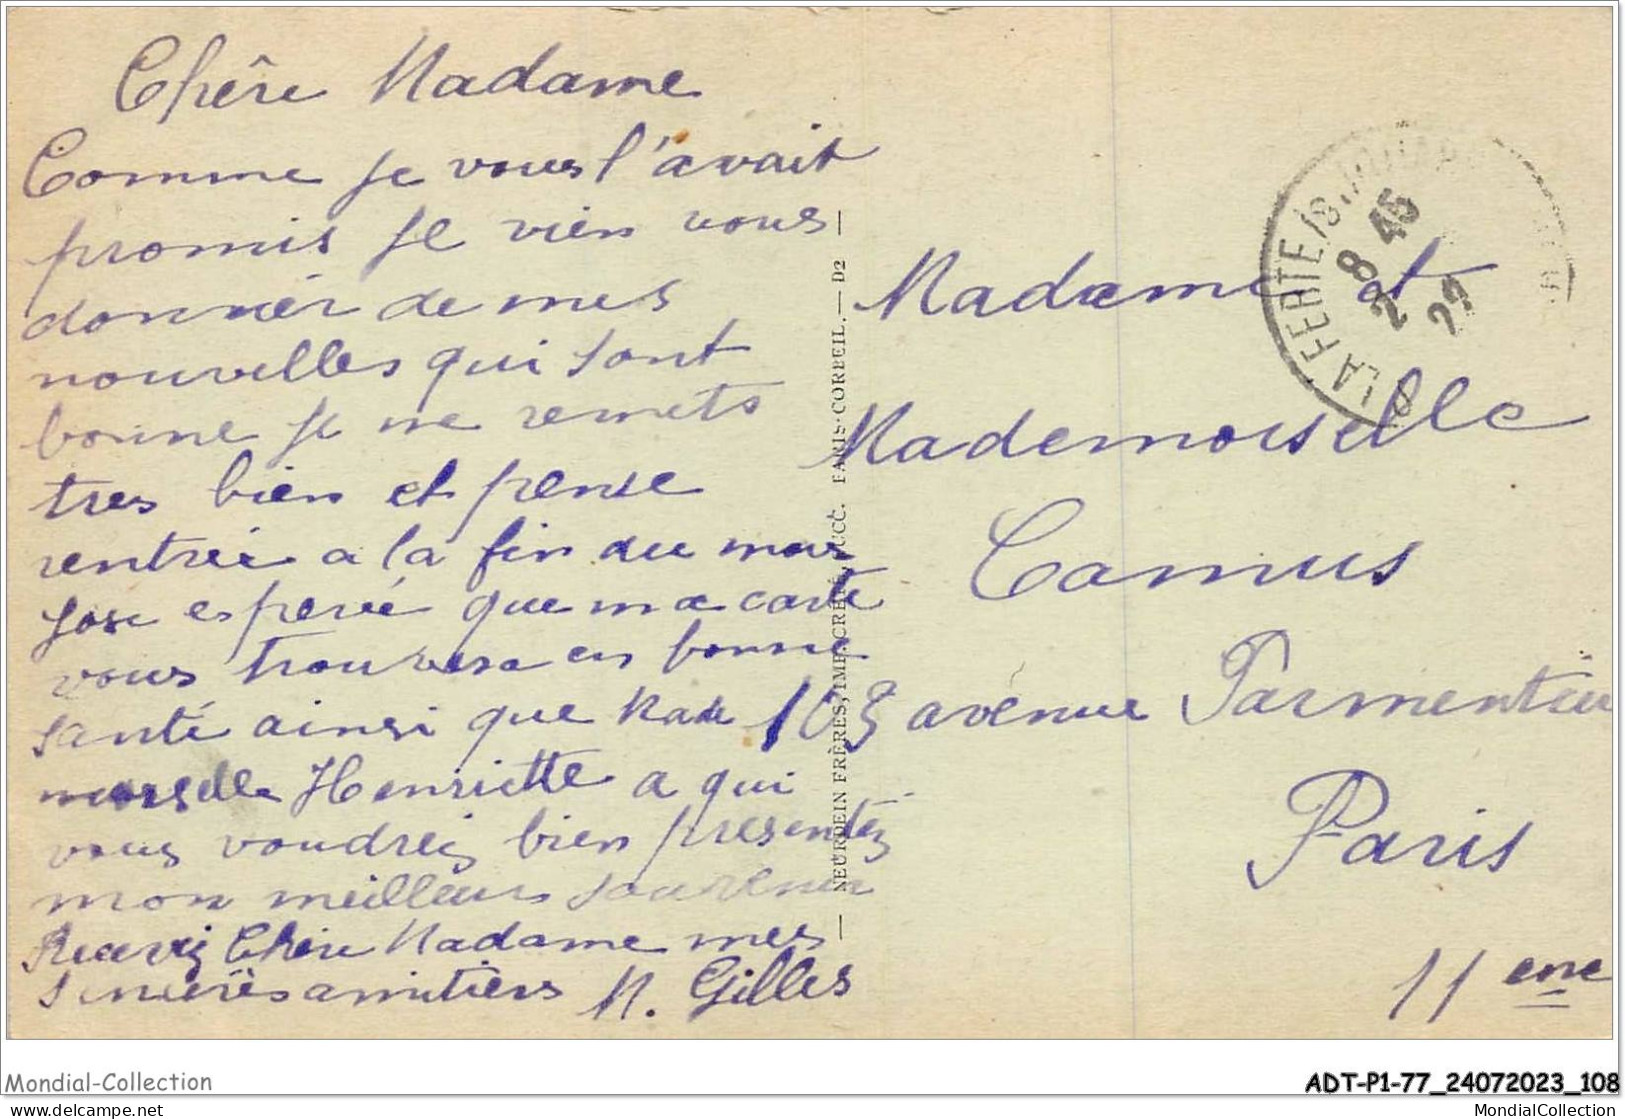 Chère Madame
Comme je vous l'avait
promis je vien vous
donnér de mes
nouvelles qui sont
bonne je me remets
tres bien et pense
rentrée a la fin du mois
Jose esperée que ma carte
vous trouvera en bonne
santé ainsi que Made
moiselle Henriette a qui
vous voudreiz bien presentez
mon meilleur souvenir
Recevez Chère Madame mes
sincères amitiers M. Gilles
NEURDEIN FRÈRES, IMP. CRÉTÉ, SUCC. PARIS-CORBEIL. — D2
LA FERTE /S. JOUARRE
8 45
2
22
Madame et
Mademoiselle
Camus
103 avenue Parmentier
Paris
11 eme
Mondial-Collection
ADT-P1-77_24072023_108
www.delcampe.net
MondialCollection